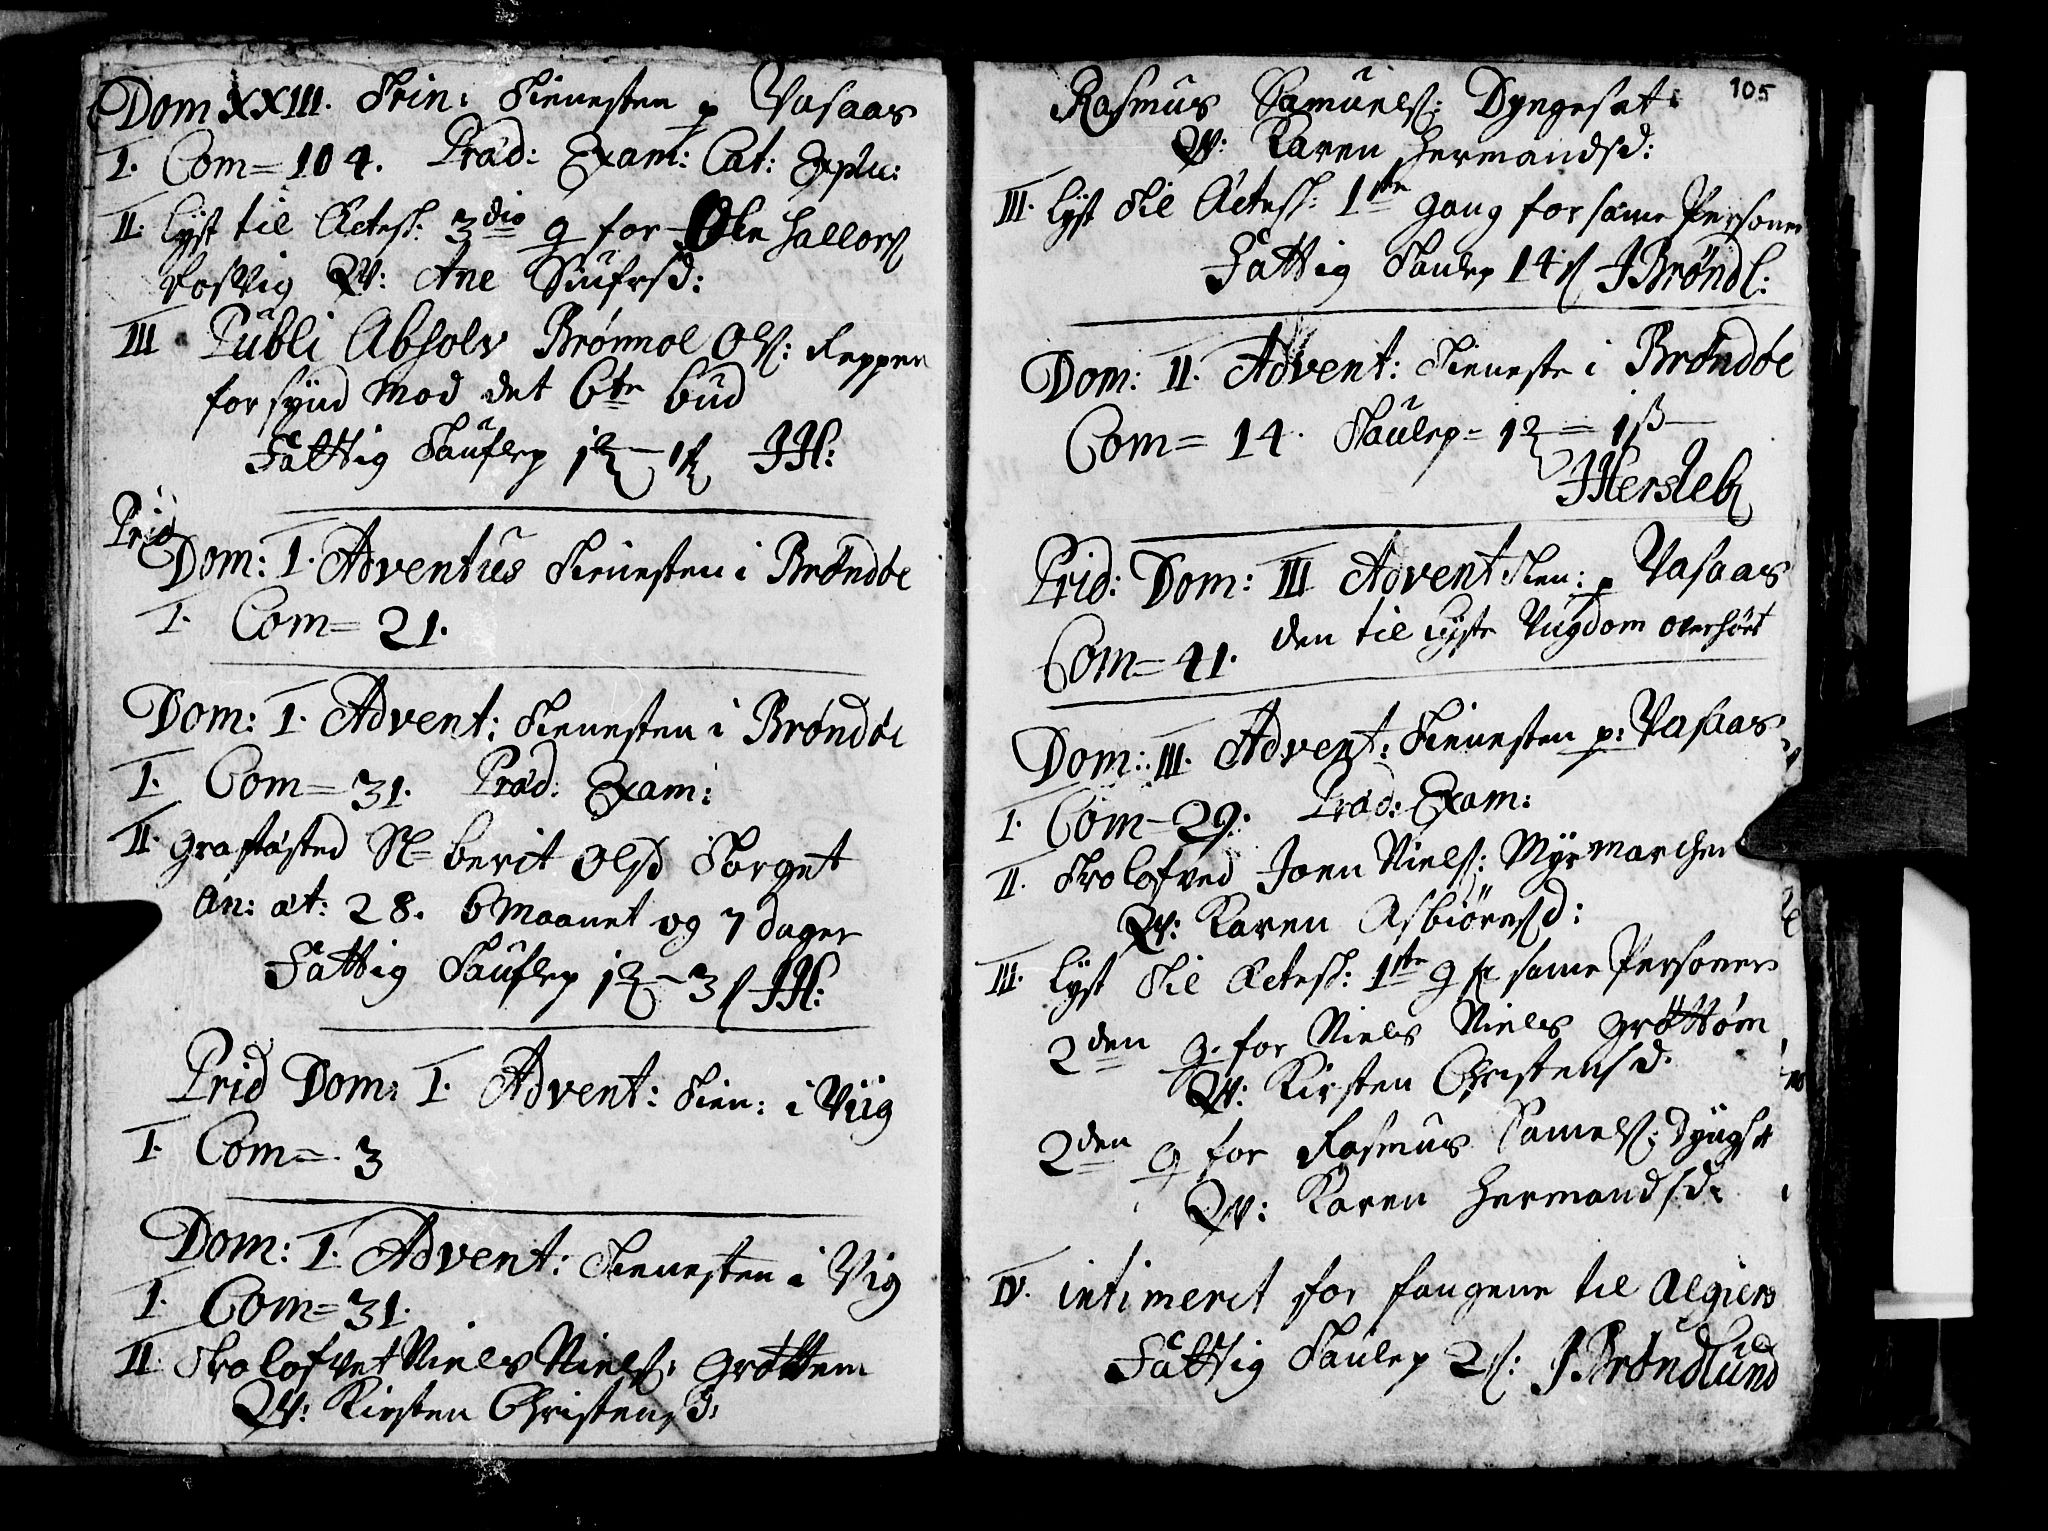 Dom XXIII. Trin: Tienesten p Vasaas
I. Com= 104. Præd: Exam: Cat: Expli:
II. lyst til Ectesk: 3die g for Ole Hallors
Qv: Ane Siufrsd:
III Publ: Absolv Brønnel Ols: Reppen
for synd mod det 6te bud
Fattig Taufle p JH:
Prid
Dom: I. Adventus Tienesten i Brøndøe
I. Com= 21.
Dom: I. Advent: Tienesten i Brøndøe
I. Com= 31. Præd: Exam:
II. graffæsted Sl= berit Olsd Torget
an: æt: 28. 6 Maanet og 7 dager
Fattig Taufle p JH:
Prid Dom: I. Advent: Tien: i Viig
I. Com= 3
Dom: I. Advent: Tienesten i Vig
I. Com= 31.
II. Trolofvet Niels Niels: Grøttem
Qv: Kirsten Christensd:
105
Rasmus Samuels: Dyngeset:
Qv: Karen Hermandsd:
III. lyst til Ectesk: 1ste gang for same Persone
Fattig Taule p 14 s JBrøndl:
Dom: II. Advent: Tieneste i Brøndøe
Com= 14. Taule p= 1 = 1 ß
JHersleb
Prid: Dom: III Advent Tien: p Vasaas
Com= 41. den til lyste Vngdom overhørt
Dom: III. Advent: Tienesten p: Vasaas
I. Com= 29. Præd: Exam:
II. Trolofved Joen Niels: Myrmarchen
Qv: Karen Asbiørnsd:
III. lyst til Ectesk: 1ste g for same Personer
2den g. for Niels Niels Grøttøm
Qv: Kirsten Christensd.
2den g for Rasmus Samels: Dyngset
Qv: Karen Hermandsd:
IV. intimeret for fangene til Algiers
Fattig Taule p 2 s: JBrøndlund